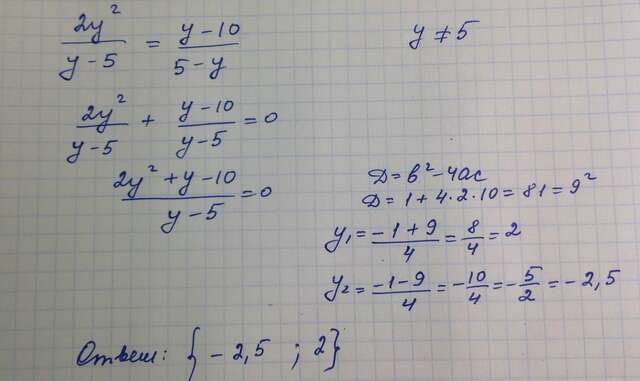 2y² / (y – 5) = (y – 10) / (5 – y)
y ≠ 5
2y² / (y – 5) + (y – 10) / (y – 5) = 0
(2y² + y – 10) / (y – 5) = 0
D = b² – 4ac
D = 1 + 4 · 2 · 10 = 81 = 9²
y₁ = (–1 + 9) / 4 = 8/4 = 2
y₂ = (–1 – 9) / 4 = –10/4 = –5/2 = –2,5
Ответ: { –2,5 ; 2}